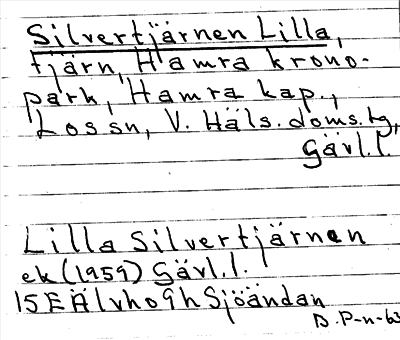 Silvertjärnen Lilla,
tjärn, Hamra krono-
park, Hamra kap.,
Los sn, V. Häls. doms. tg,
Gävl. l.
Lilla Silvertjärnen
ek (1959) Gävl. l.
15E Älvho 9h Sjöändan
D. P-n-63